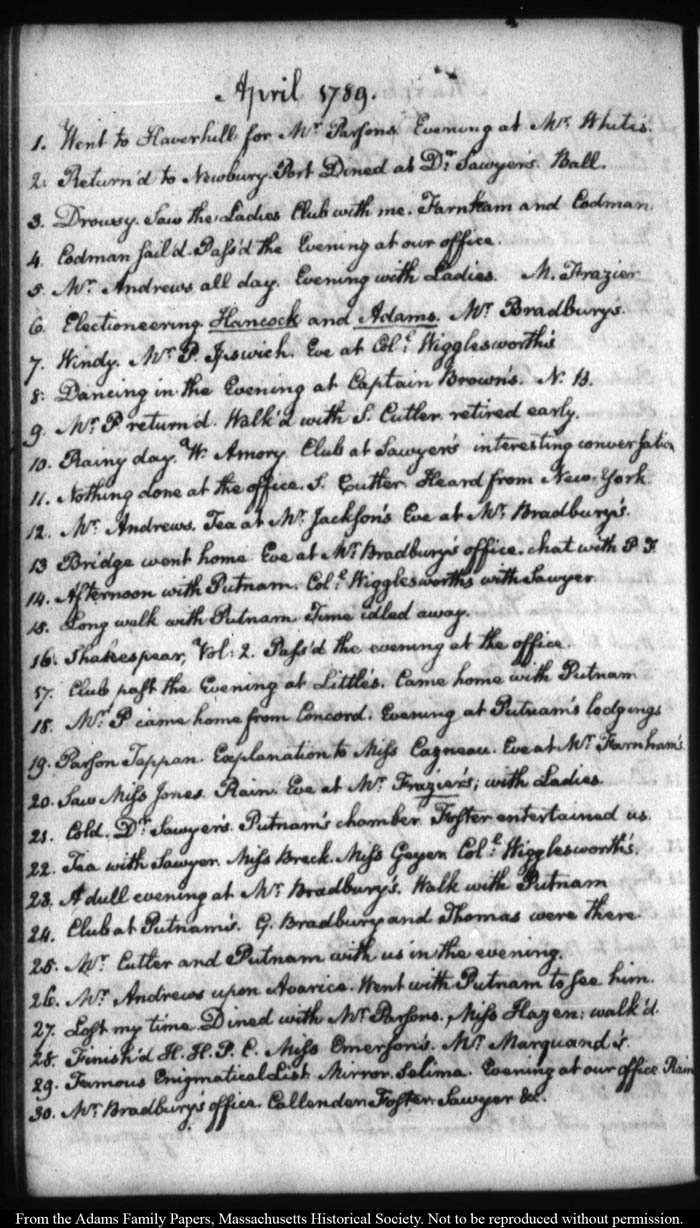 April 1789.
1. Went to Haverhill for Mr. Parsons. Evening at Mr. White's.
2. Return'd to Newbury-Port Dined at Dr. Sawyer's. Ball.
3. Drowsy. Saw the Ladies Club with me. Farnham and Codman.
4. Codman sail'd. Pass'd the Evening at our office.
5. Mr. Andrews all day. Evening with Ladies. M. Frazier
6. Electioneering. Hancock and Adams. Mr. Bradbury's.
7. Windy. Mr. P. Ipswich. Eve at Coll. Wigglesworth's
8. Dancing in the Evening at Captain Brown's. N. B.
9. Mr. P return'd. Walk'd with S. Cutler. retired early.
10. Rainy day. W. Amory. Club at Sawyer's interesting conversation
11. Nothing done at the office. S. Cutler. Heard from New-York.
12. Mr. Andrews. Tea at Mr. Jackson's Eve at Mr. Bradbury's.
13 Bridge went home Eve at Mr. Bradbury's office. chat with P. F.
14. Afternoon with Putnam. Coll. Wigglesworth's with Sawyer.
15. Long walk with Putnam Time idled away.
16. Shakespear, Vol: 2. Pass'd the evening at the office.
17. Club past the Evening at Little's. Came home with Putnam
18. Mr. P came home from Concord. Evening at Putnam's lodgings
19. Parson Tappan. Explanation to Miss Cazneau. Eve at Mr. Farnham's
20. Saw Miss Jones. Rain. Eve at Mr. Frazier's; with Ladies
21. Cold. Dr. Sawyer's. Putnam's chamber. Foster entertained us.
22. Tea with Sawyer. Miss Breck. Miss Geyer Coll. Wigglesworth's.
23. A dull evening at Mr. Bradbury's. Walk with Putnam
24. Club at Putnam's. G. Bradbury and Thomas were there.
25. Mr. Cutler and Putnam with us in the evening.
26. Mr. Andrews upon Avarice. Went with Putnam to see him.
27. Lost my time. Dined with Mr. Parsons. Miss Hazen; walk'd.
28. Finish'd H. H. P. C. Miss Emerson's. Mr. Marquand's.
29. Famous Enigmatical List. Mirror. Selima. Evening at our office. Rain
30. Mr. Bradbury's office. Callender Foster. Sawyer &c.
From the Adams Family Papers, Massachusetts Historical Society. Not to be reproduced without permission.